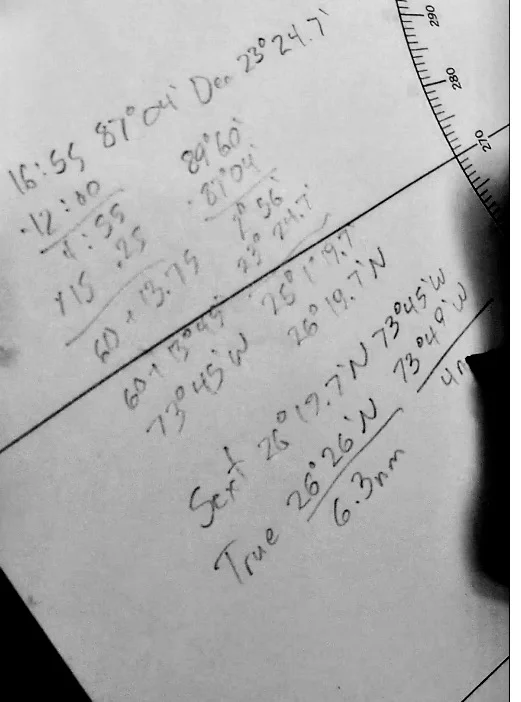 16:55 87°04' Dec 23°24.7'
-12:00
4:55
*15 .25
60 + 13.75
60 + 13°45'
73°45'W
89°60'
-87°04'
2°56'
23°24.7'
25°1°19.7'
26°19.7'N
Sext 26°19.7'N 73°45'W
True 26°26'N 73°49'W
6.3nm
290
280
270